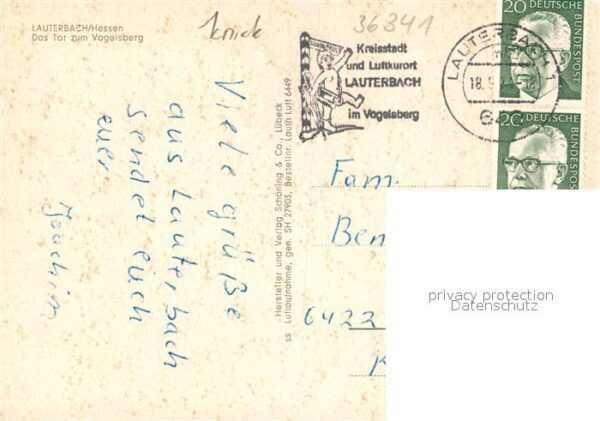 LAUTERBACH/Hessen
Das Tor zum Vogelsberg
knick
36341
Kreisstadt
und Luftkurort
LAUTERBACH
im Vogelsberg
LAUTERBACH 1
18.
20
DEUTSCHE
BUNDESPOST
20
DEUTSCHE
BUNDESPOST
Viele grüße
aus Lauterbach
sendet euch
euer
Joachim
Hersteller und Verlag Schöning & Co., Lübeck
ss Luftaufnahme, gen. SH 27903, Bestellnr. Lauth Luft 6449
Fam.
Ben
6422
privacy protection
Datenschutz